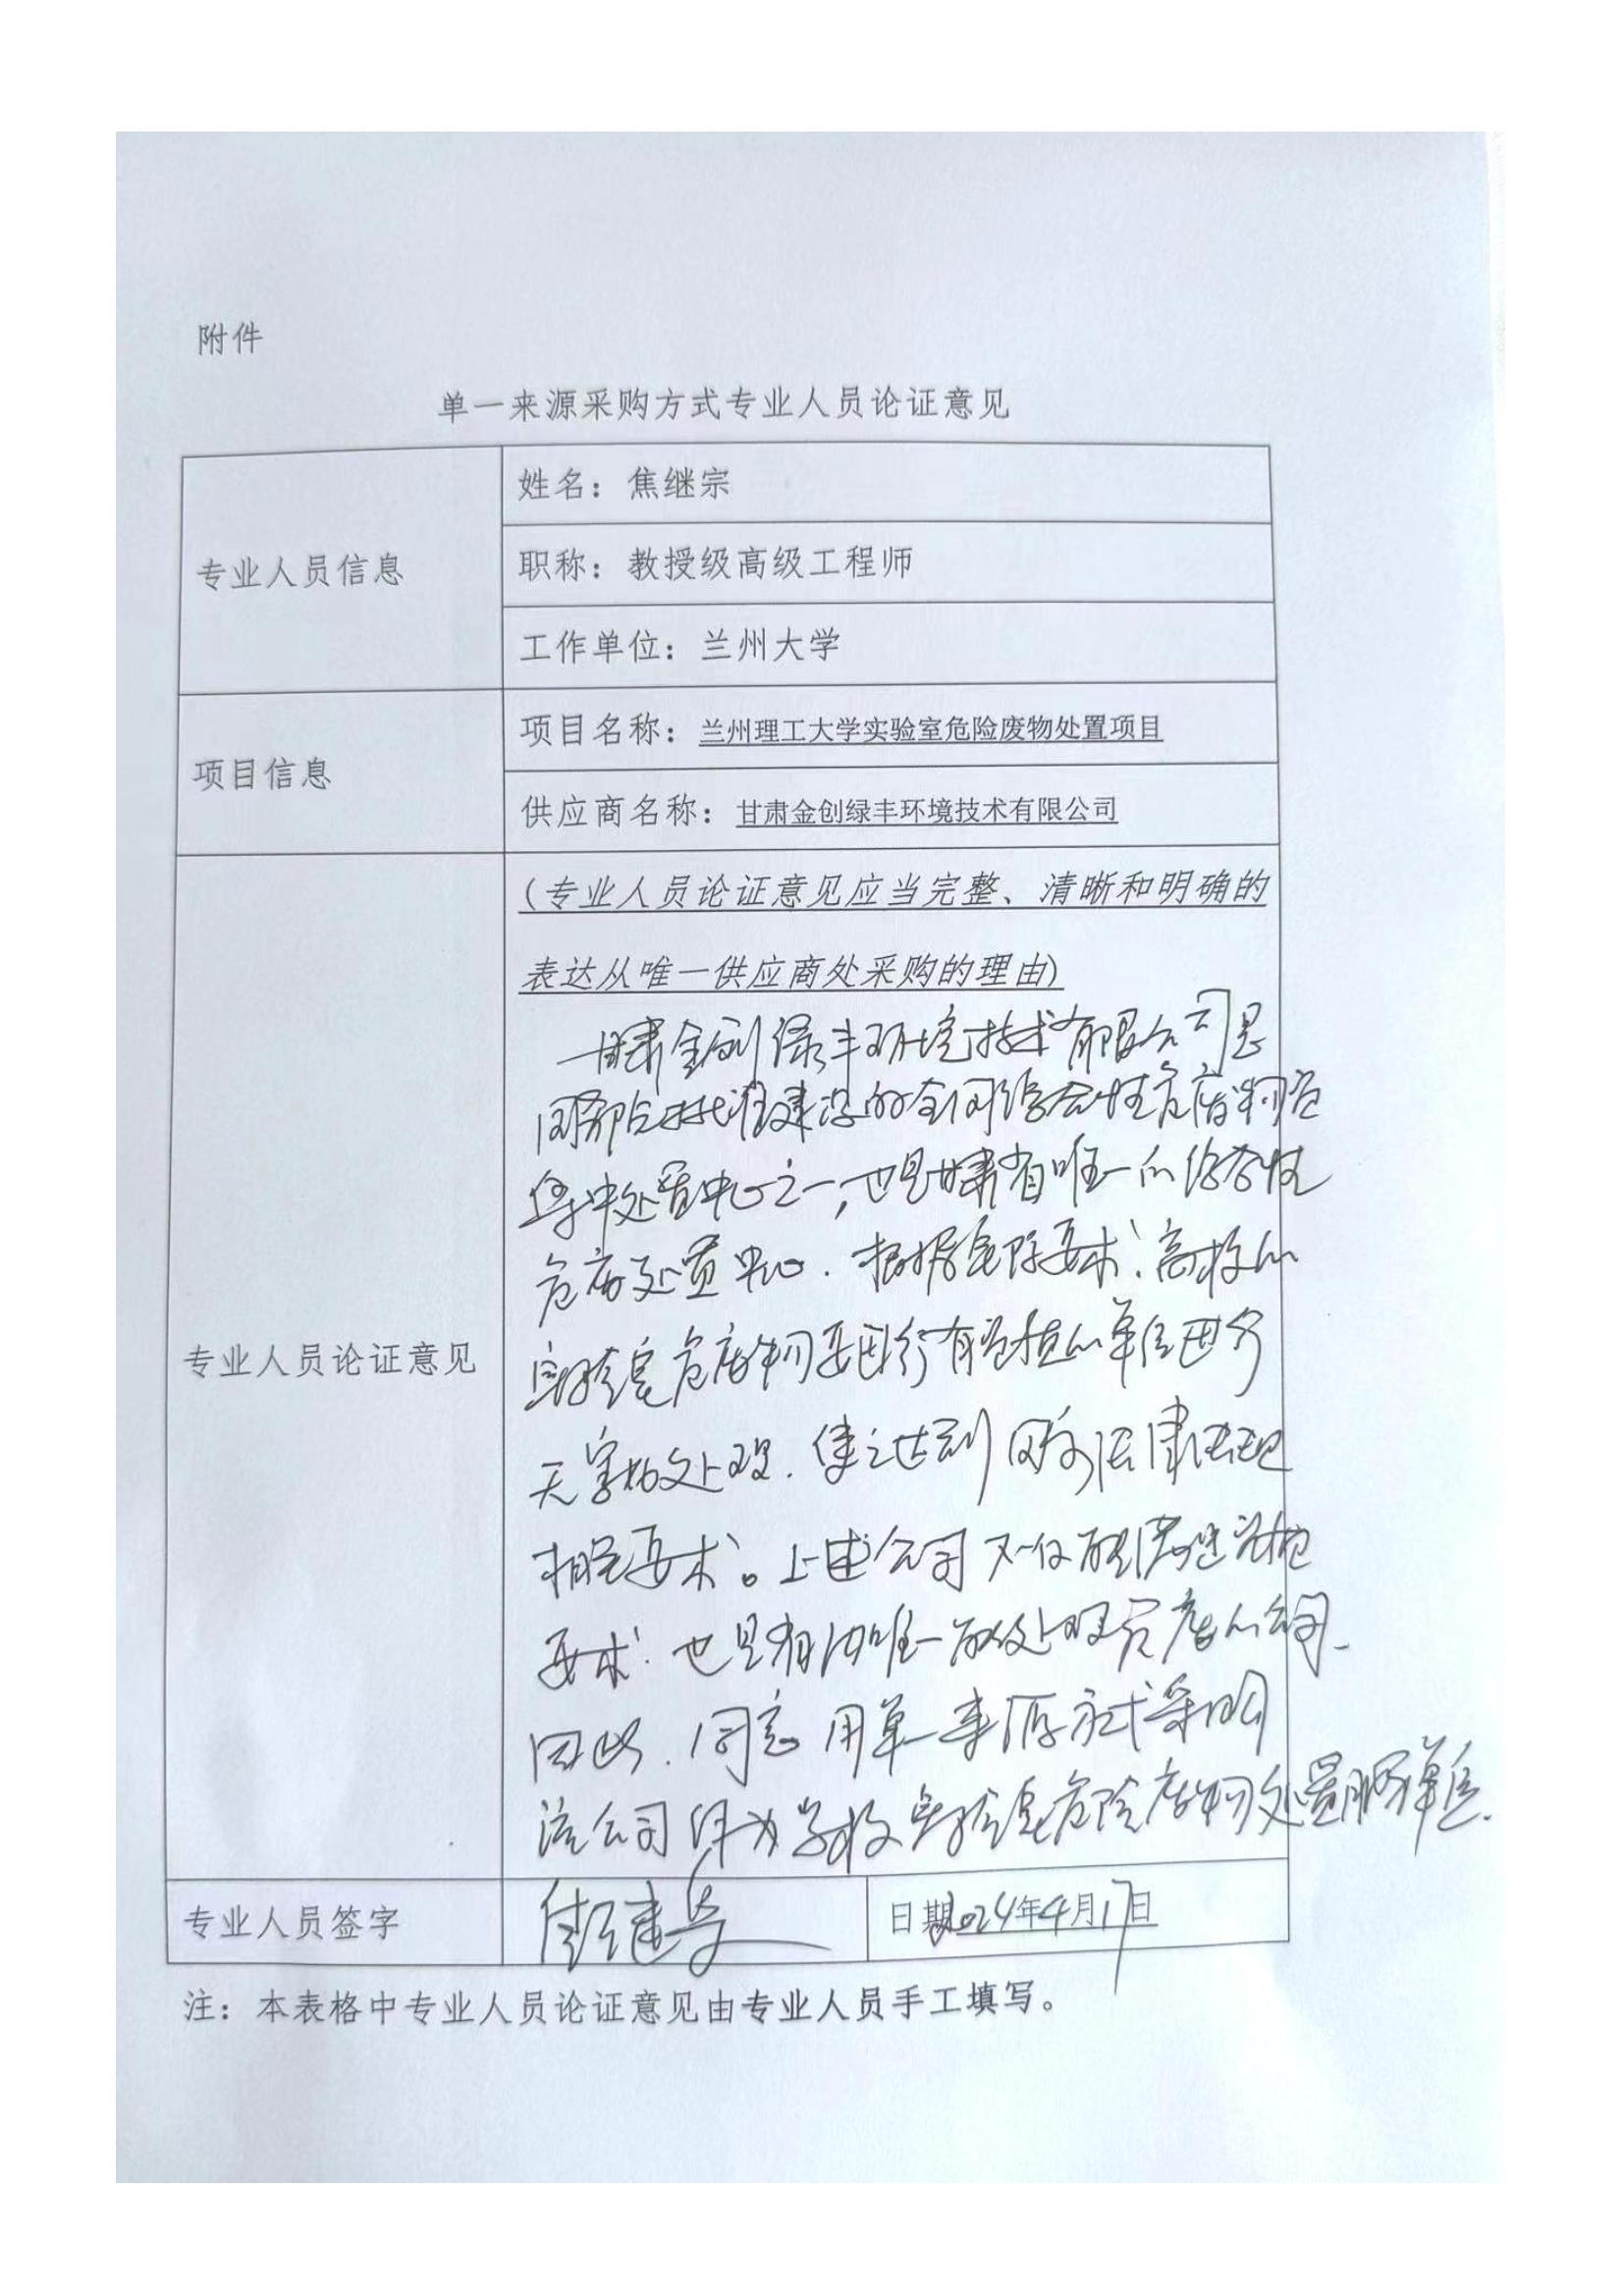 附件
单一来源采购方式专业人员论证意见
专业人员信息
姓名：焦继宗
职称：教授级高级工程师
工作单位：兰州大学
项目信息
项目名称：兰州理工大学实验室危险废物处置项目
供应商名称：甘肃金创绿丰环境技术有限公司
专业人员论证意见
（专业人员论证意见应当完整、清晰和明确的
表达从唯一供应商处采购的理由）
甘肃金创绿丰环境技术有限公司是
国务院批准建设的全国综合性危废物
集中处置中心之一，也是甘肃省唯一的综合性
危废处置中心．根据实际要求，高校的
实验室危废物要由有资质的单位进行
无害化处理．使之达到国家法律法规
相关要求。上述公司不仅
要求．也是省内唯一处理危废的公司．
因此．同意用单一来源方式采购
该公司作为学校实验室危险废物处置服务单位．
专业人员签字
日期2024年4月17日
注：本表格中专业人员论证意见由专业人员手工填写。